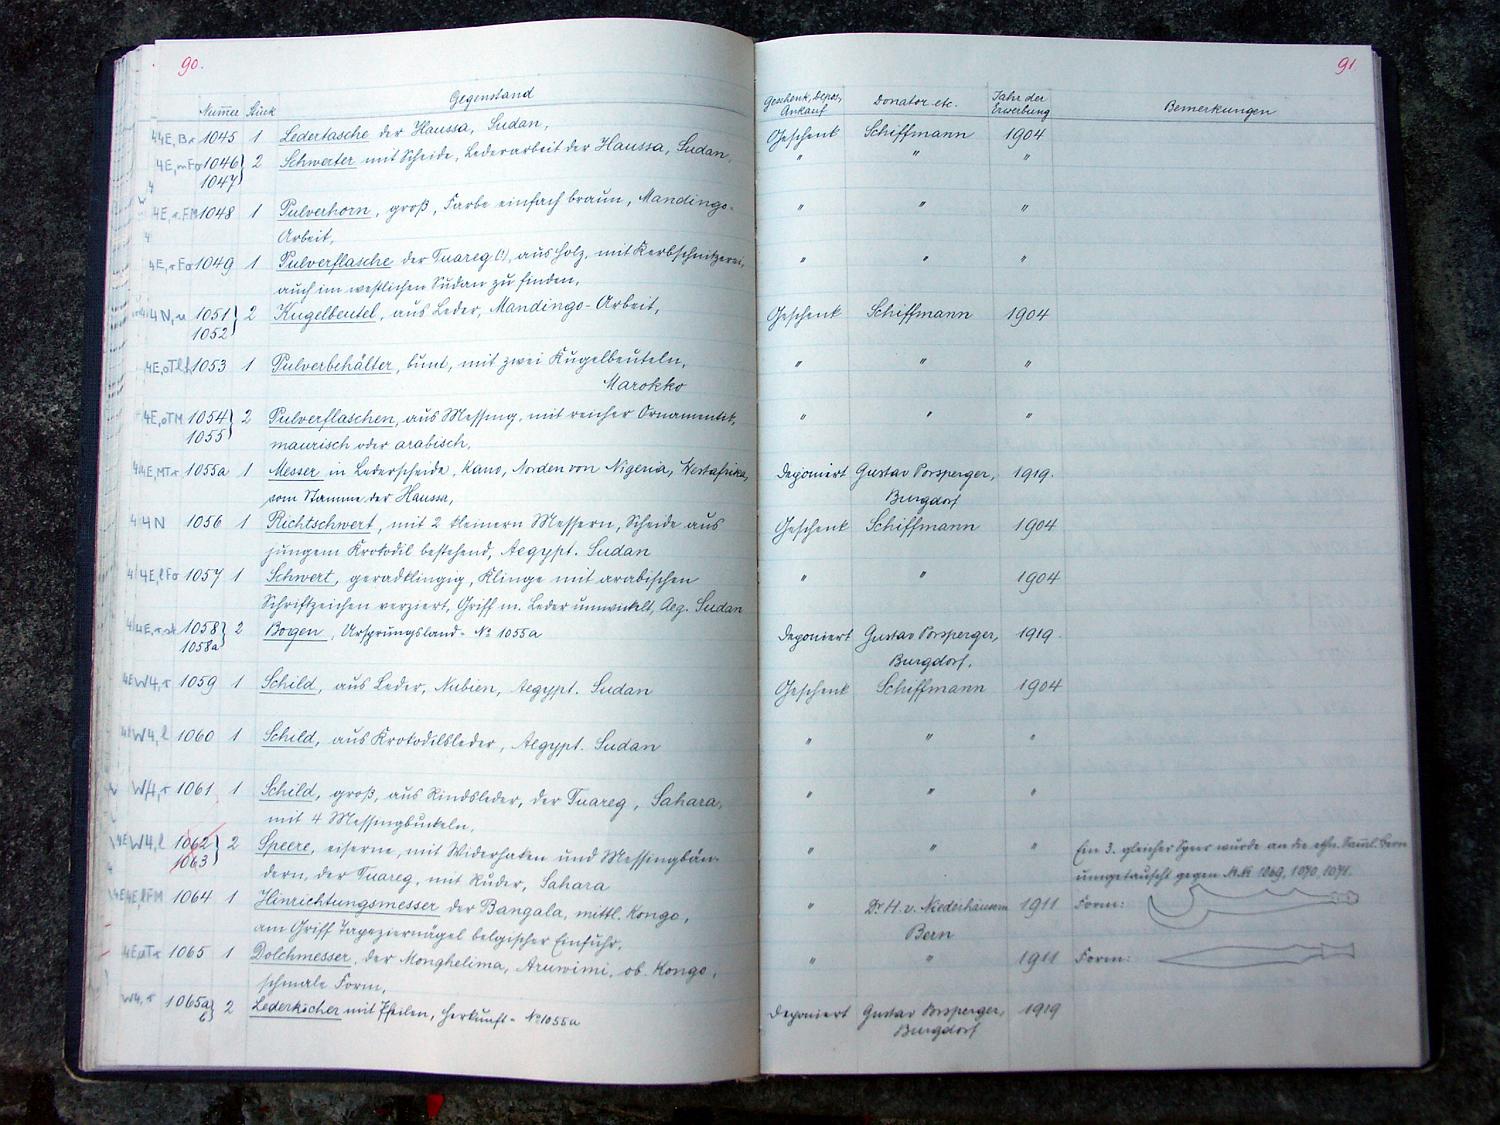 90.
Numer Stück Gegenstand
44E, Br 1045 1 Ledertasche der Haussa, Sudan,
4E, 1046 2 Schwerter mit Scheide, Lederarbeit der Haussa, Sudan,
1047
4E, 1048 1 Pulverhorn, groß, Farbe einfach braun, Mandingo-
4 Arbeit,
4E, 1049 1 Pulverflasche der Tuareg (?), aus Holz, mit Kerbschnitzerei,
auch im westlichen Sudan zu finden,
4N, u 1051 2 Kugelbeutel, aus Leder, Mandingo-Arbeit,
1052
1053 1 Pulverbehälter, bunt, mit zwei Kugelbeuteln,
Marokko
4E, oTM 1054 2 Pulverflaschen, aus Messing, mit reicher Ornamentik,
1055 maurisch oder arabisch,
4/4E, MTr 1055a 1 Messer in Lederscheide, Kano, Norden von Nigeria, Westafrika,
vom Stamme der Haussa,
4/4N 1056 1 Richtschwert, mit 2 kleinern Messern, Scheide aus
jungem Krokodil bestehend, Aegypt. Sudan
4/4E, lFo 1057 1 Schwert, geradklingig, Klinge mit arabischen
Schriftzeichen verziert, Griff m. Leder umwickelt, Aeg. Sudan
1058 2 Bogen, Ursprungsland = No 1055a
1058a
4E W4, r 1059 1 Schild, aus Leder, Nubien, Aegypt. Sudan
W4, l 1060 1 Schild, aus Krokodilsleder, Aegypt. Sudan
W4, r 1061 1 Schild, groß, aus Rindsleder, der Tuareg, Sahara,
mit 4 Messingbuckeln,
4E W4, l 1062 2 Speere, eiserne, mit Widerhaken und Messingbän-
1063 dern, der Tuareg, mit Ruder, Sahara
4E, lFM 1064 1 Hinrichtungsmesser der Bangala, mittl. Kongo,
am Griff Tapeziernägel belgischer Einfuhr,
4E, uTr 1065 1 Dolchmesser, der Monghelima, Aruwimi, ob. Kongo,
schmale Form,
W4, r 1065a 2 Lederköcher mit Pfeilen, Herkunft = No 1055a
b
91
Geschenk, Depos, Donator etc. Jahr der Bemerkungen
Ankauf Erwerbung
Geschenk Schiffmann 1904
" " "
" " "
" " "
Geschenk Schiffmann 1904
" " "
" " "
Deponiert Gustav Porsperger, 1919.
Burgdorf
Geschenk Schiffmann 1904
" " 1904
Deponiert Gustav Porsperger, 1919.
Burgdorf.
Geschenk Schiffmann 1904
" " "
" " "
" " " Ein 3. gleicher Speer wurde an die ethn. Samml. Bern
umgetauscht gegen NoNo 1069, 1070, 1071.
" Dr H. v. Niederhäusern 1911 Form:
Bern
" " 1911 Form:
Deponiert Gustav Porsperger, 1919
Burgdorf